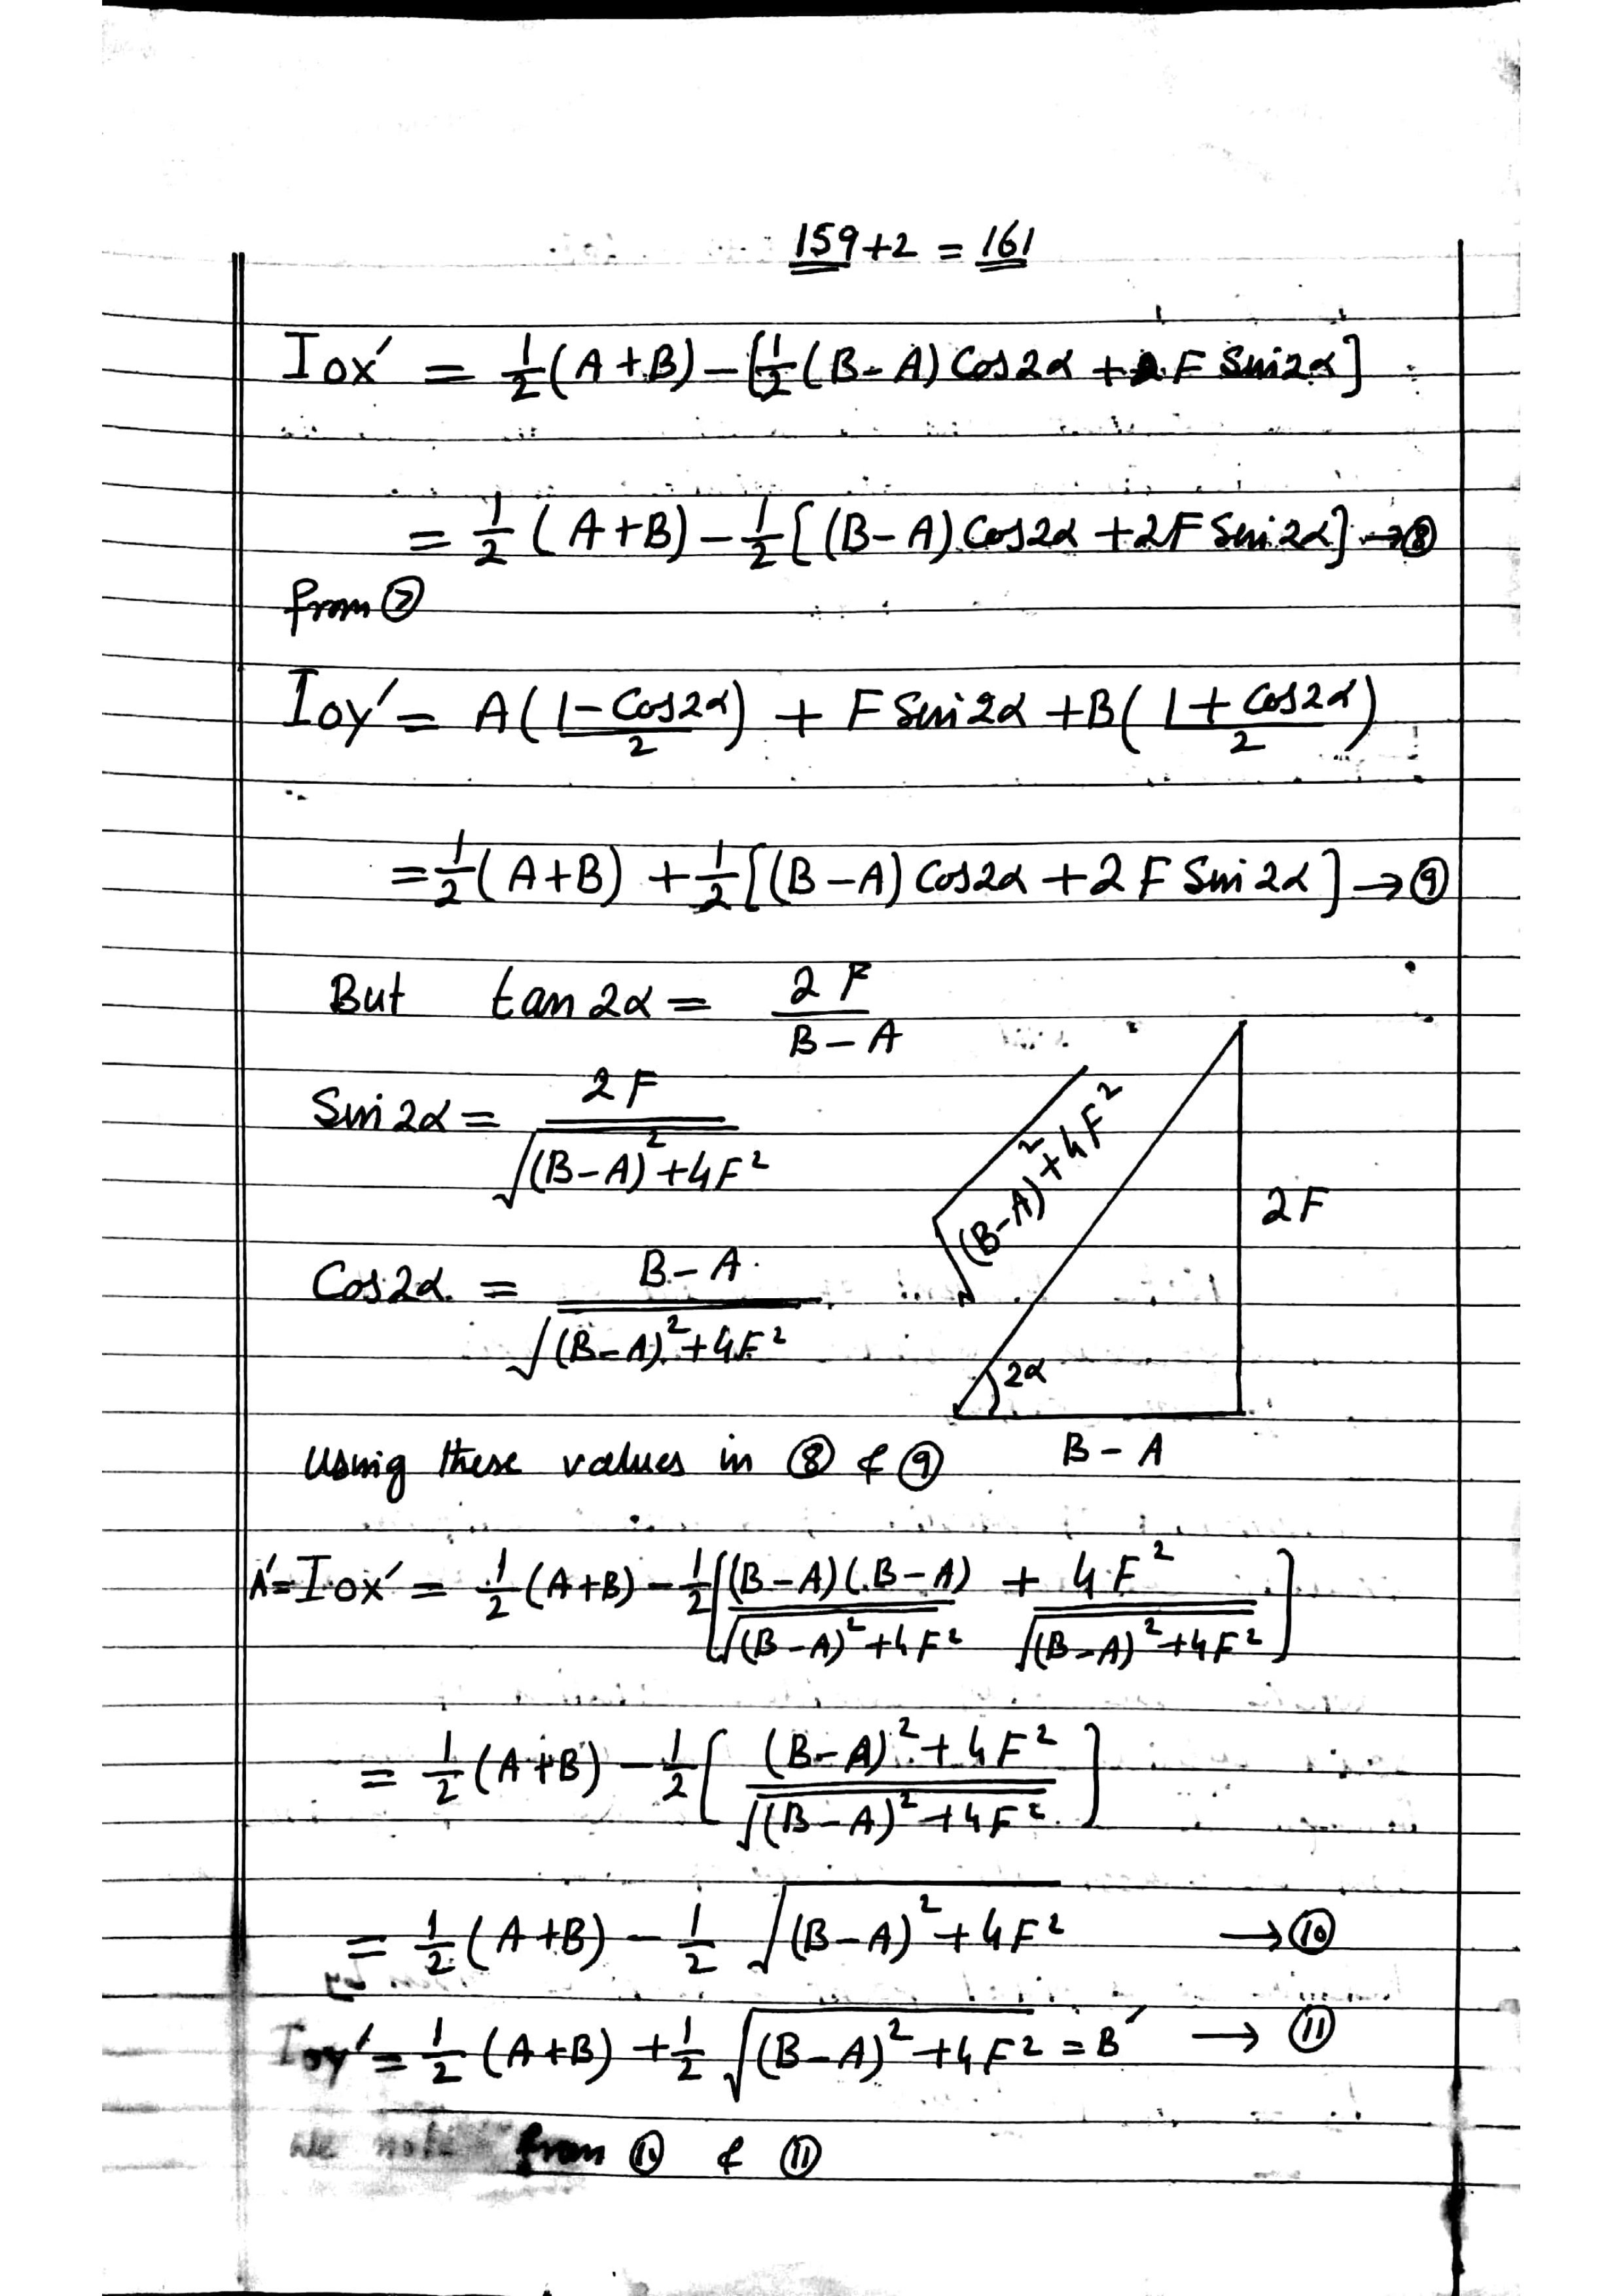 159+2 = 161
Iox′ = 1/2 (A+B) – [1/2 (B-A) Cos2α + F Sin2α]
= 1/2 (A+B) – 1/2 [(B-A) Cos2α + 2F Sin2α] → ⑧
from ⑦
Ioy′ = A(1-Cos2α/2) + F Sin2α + B(1+Cos2α/2)
= 1/2 (A+B) + 1/2 [(B-A) Cos2α + 2F Sin2α] → ⑨
But tan2α = 2F/B-A
Sin2α = 2F/√(B-A)²+4F²
√(B-A)²+4F²
2F
Cos2α = B-A/√(B-A)²+4F²
2α
B-A
Using these values in ⑧ & ⑨
A′ = Iox′ = 1/2 (A+B) – 1/2 [(B-A)(B-A)/√(B-A)²+4F² + 4F²/√(B-A)²+4F²]
= 1/2 (A+B) – 1/2 [(B-A)²+4F²/√(B-A)²+4F²]
= 1/2 (A+B) – 1/2 √(B-A)²+4F² → ⑩
Ioy′ = 1/2 (A+B) + 1/2 √(B-A)²+4F² = B′ → ⑪
We note from ⑩ & ⑪